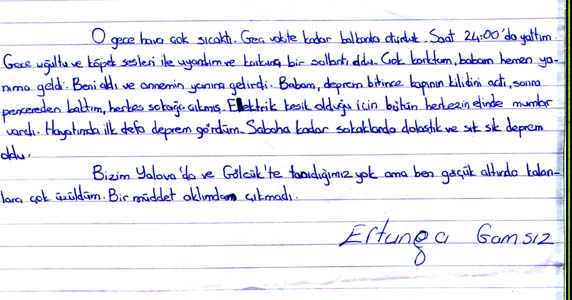 O gece hava çok sıcaktı. Geç vakite kadar balkonda oturduk. Saat 24:00'da yattım.
Gece uğultu ve köpek sesleri ile uyandım ve korkunç bir sallantı oldu. Çok korktum, babam hemen ya-
nıma geldi. Beni aldı ve annemin yanına getirdi. Babam, deprem bitince kapının kilidini açtı, sonra
pencereden baktım, herkes sokağa çıkmış. Elektrik kesik olduğu için bütün herkezin elinde mumlar
vardı. Hayatımda ilk defa deprem gördüm. Sabaha kadar sokaklarda dolaştık ve sık sık deprem
oldu.
Bizim Yalova'da ve Gölcük'te tanıdığımız yok ama ben göçük altında kalan-
lara çok üzüldüm. Bir müddet aklımdan çıkmadı.
Ertunga Gamsız